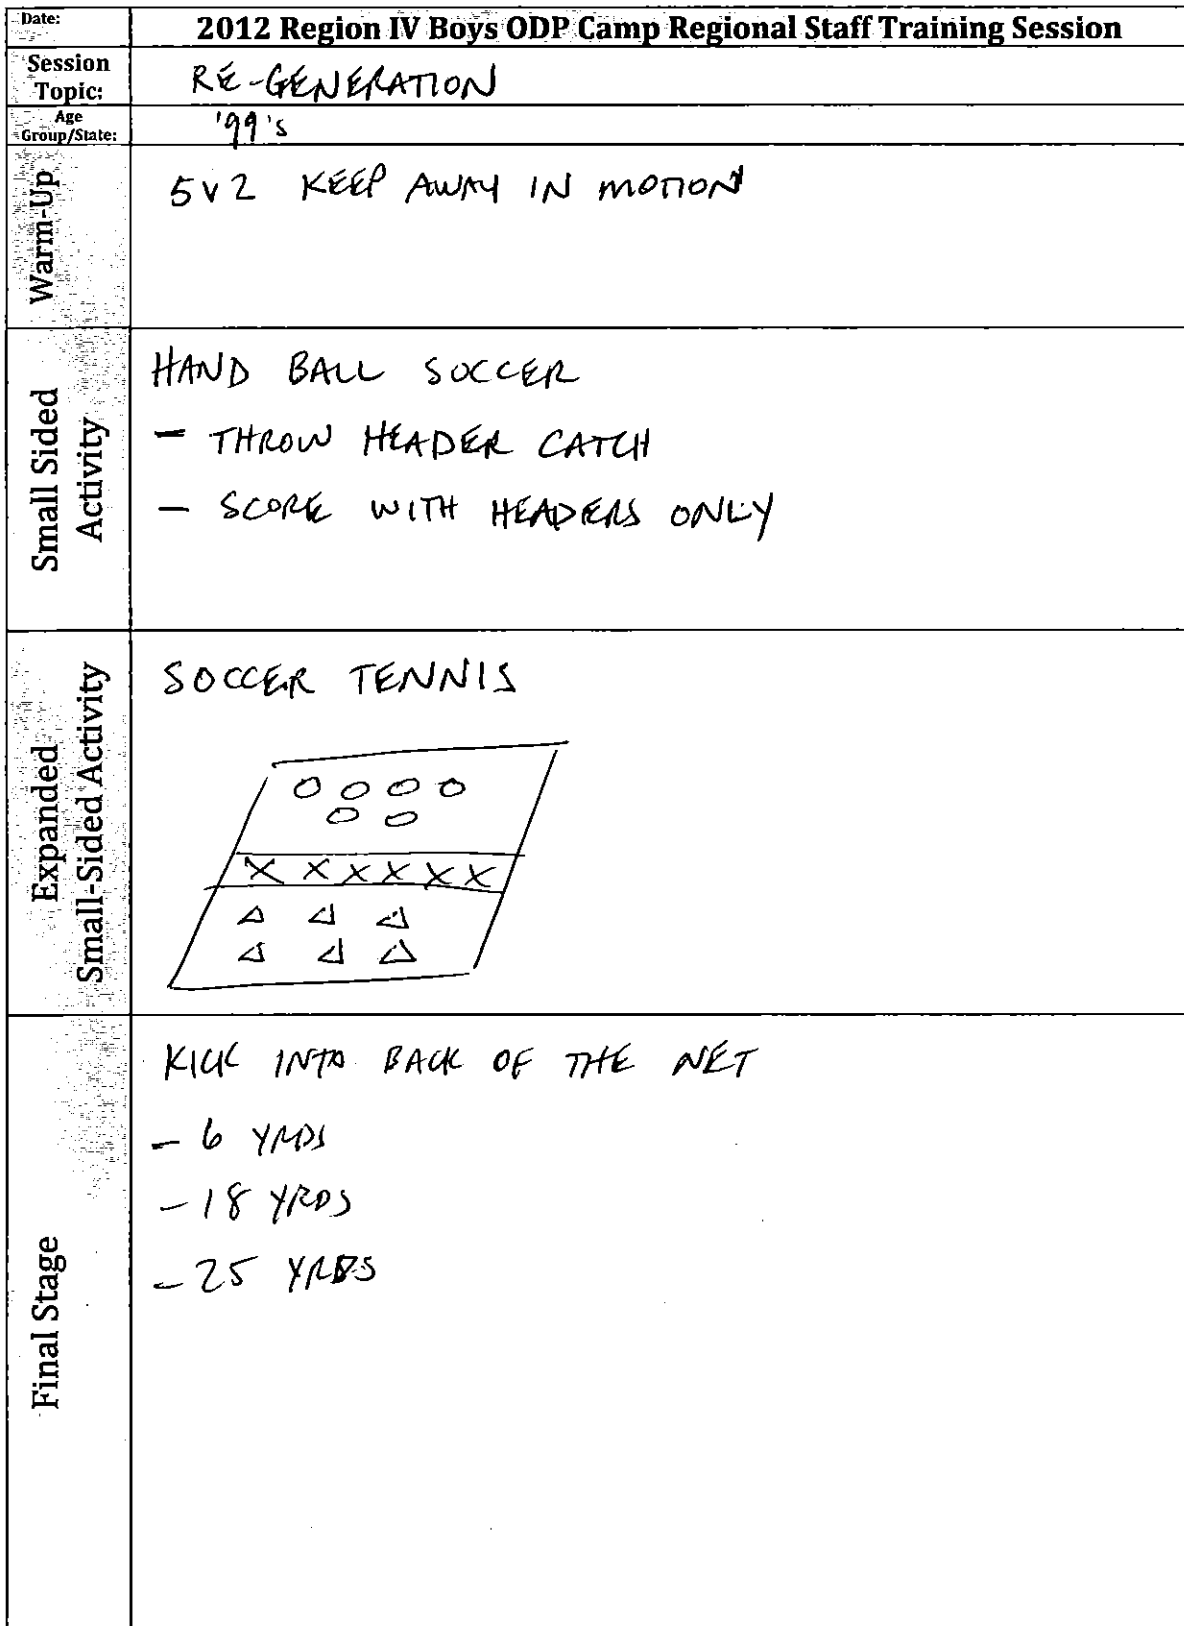 Date:
2012 Region IV Boys ODP Camp Regional Staff Training Session
Session
Topic:
RE-GENERATION
Age
Group/State:
'99's
Warm-Up
5 V 2 KEEP AWAY IN MOTION
Small Sided
Activity
HAND BALL SOCCER
- THROW HEADER CATCH
- SCORE WITH HEADERS ONLY
Expanded
Small-Sided Activity
SOCCER TENNIS
O O O O
O O
X X X X X X
Final Stage
KICK INTO BACK OF THE NET
- 6 YRDS
- 18 YRDS
- 25 YRDS